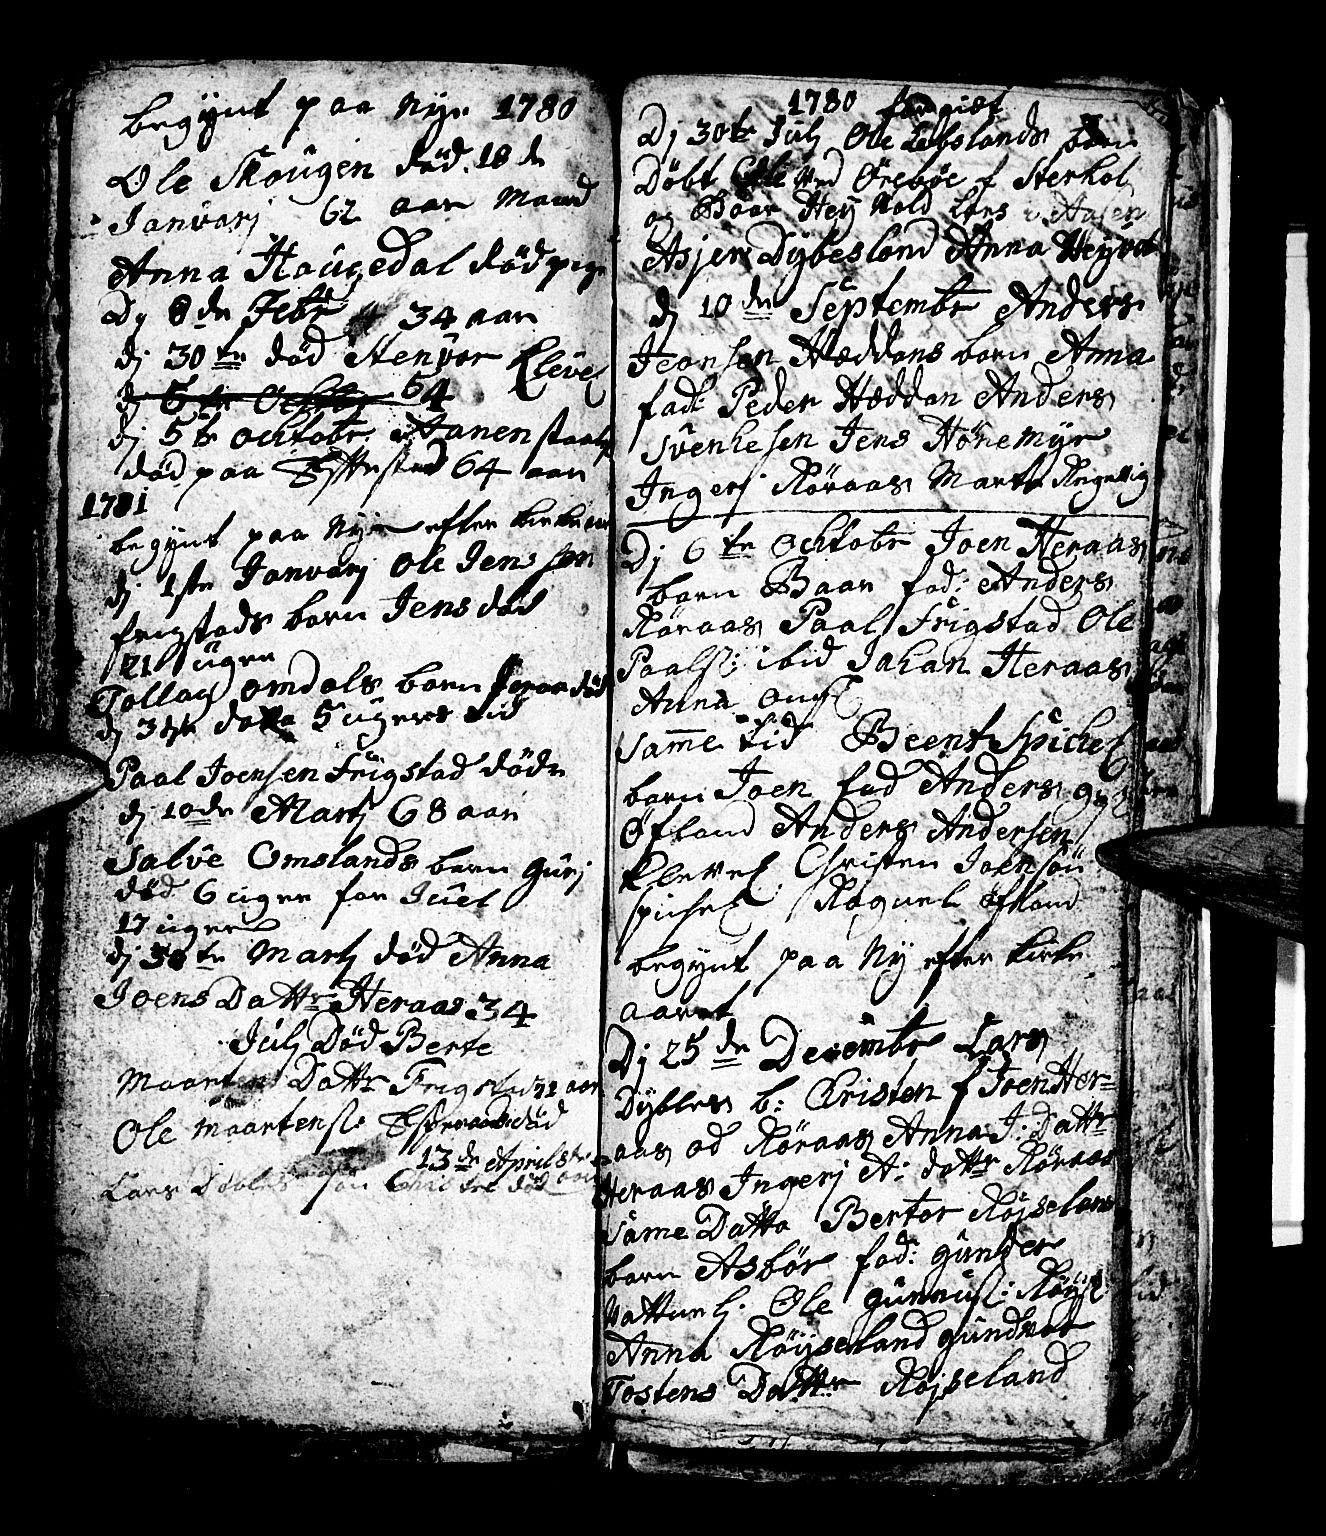 begÿnt paa Nÿe 1780
Ole Skougen død. 18 de
Januarj 62 aar Maand
Anna Haugedal død pige
Dj 8 de Febr 34 aar
dj 30 te død Stenvor Klevel
dj 5 te Octobr 64
dj 5 te Ochtobr Aanen
død paa 64 aar
1781
begÿnt paa Nÿe efter
dj 1ste Januarj Ole Jens søn
frigstads barn Jens død
21 uger
Tollag omdals barn død
dj 3die datto 5 ugers tid
Paal Joensen Frigstad døde
dj 10de Martj 68 aar
Salve Omslands barn Gurj
død 6 uger for Juel
17 uger
dj 30 te Martj død Anna
Joens Dattr Heraas 34
Julj Død Berte
Maartens Dattr Frigstad 71 aar
Ole Maartens. død
13 de Aprils
Lars søn død
1780
Dj 30te Julj Ole barn
Døbt Ole ved Ørebøe f
og Baar Heÿ Kold Lars Aasen
Asjer Dÿbesland Anna
dj 10 de Septembr Anders
Jeansen Hæddans barn Anna
fad: Peder Hæddan Anders
Svenkesen Jens Hønemÿr
Ingerj Røraas Marte
Dj 6 te Ochtobr Joen Heraas
barn Baar fad: Anders
Røraas Paal Frigstad Ole
Paals: ibid Johan Heraas
Anna
Same tid Beent Spichel
barn Joen fad Anders
Øfland Anders Andersen
Klevel Christen Joensøn
Spichel Raguel Øfland
begÿnt paa Nÿ efter kirke
aaret
Dj 25 de December Lars
Dÿbles b: Christen f Joen Her=
aas od Røraas Anna J: Dattr
Heraas Ingerj A: dattr Røraas
Same Datto Bertor Røjseland
barn Asbør fad: gunder
Ole gunnus: Røÿs:
Anna Røÿseland gundvor
Tostens Dattr Røjseland